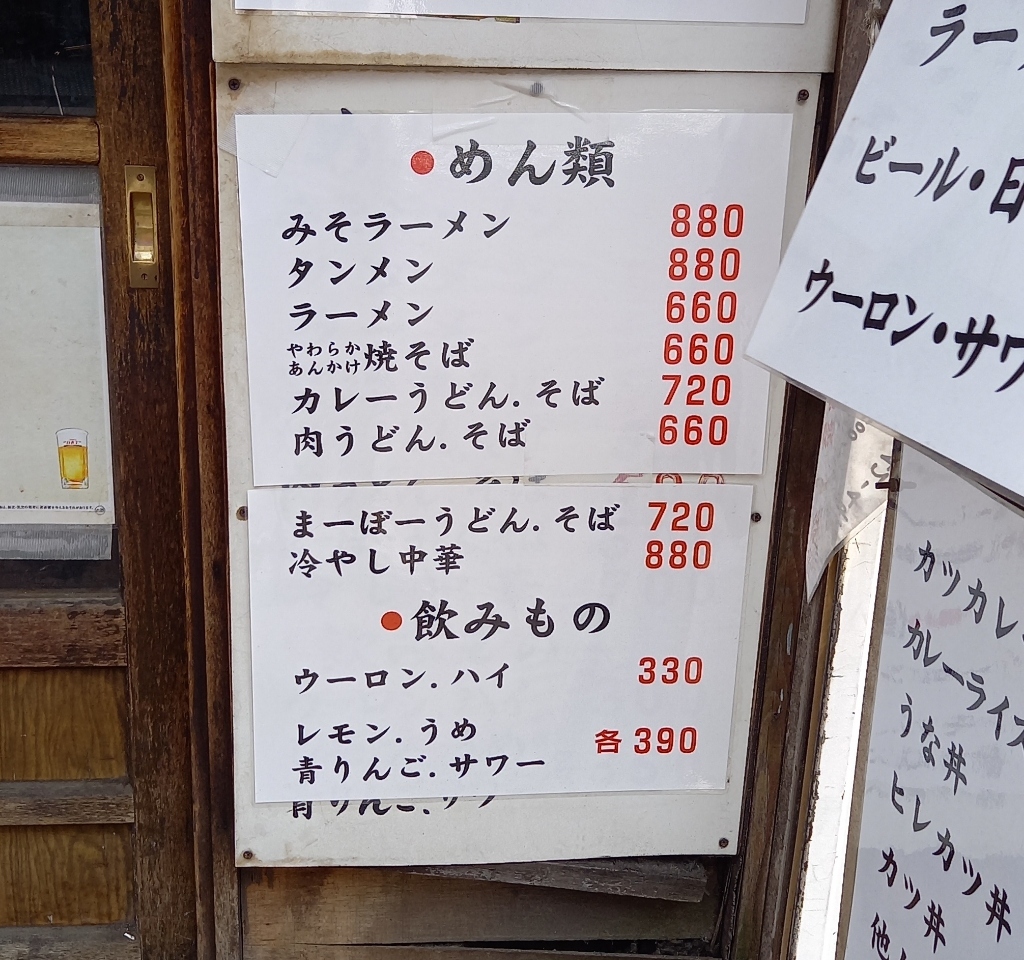 ●めん類
みそラーメン 880
タンメン 880
ラーメン 660
やわらか
あんかけ焼そば 660
カレーうどん.そば 720
肉うどん.そば 660
まーぼーうどん.そば 720
冷やし中華 880
●飲みもの
ウーロン.ハイ 330
レモン.うめ
青りんご.サワー 各390
青りんご.サワ
ラー
ビール・
ウーロン・サワ
カツカレ
カレーライス
うな丼
ヒレカツ丼
カツ丼
他